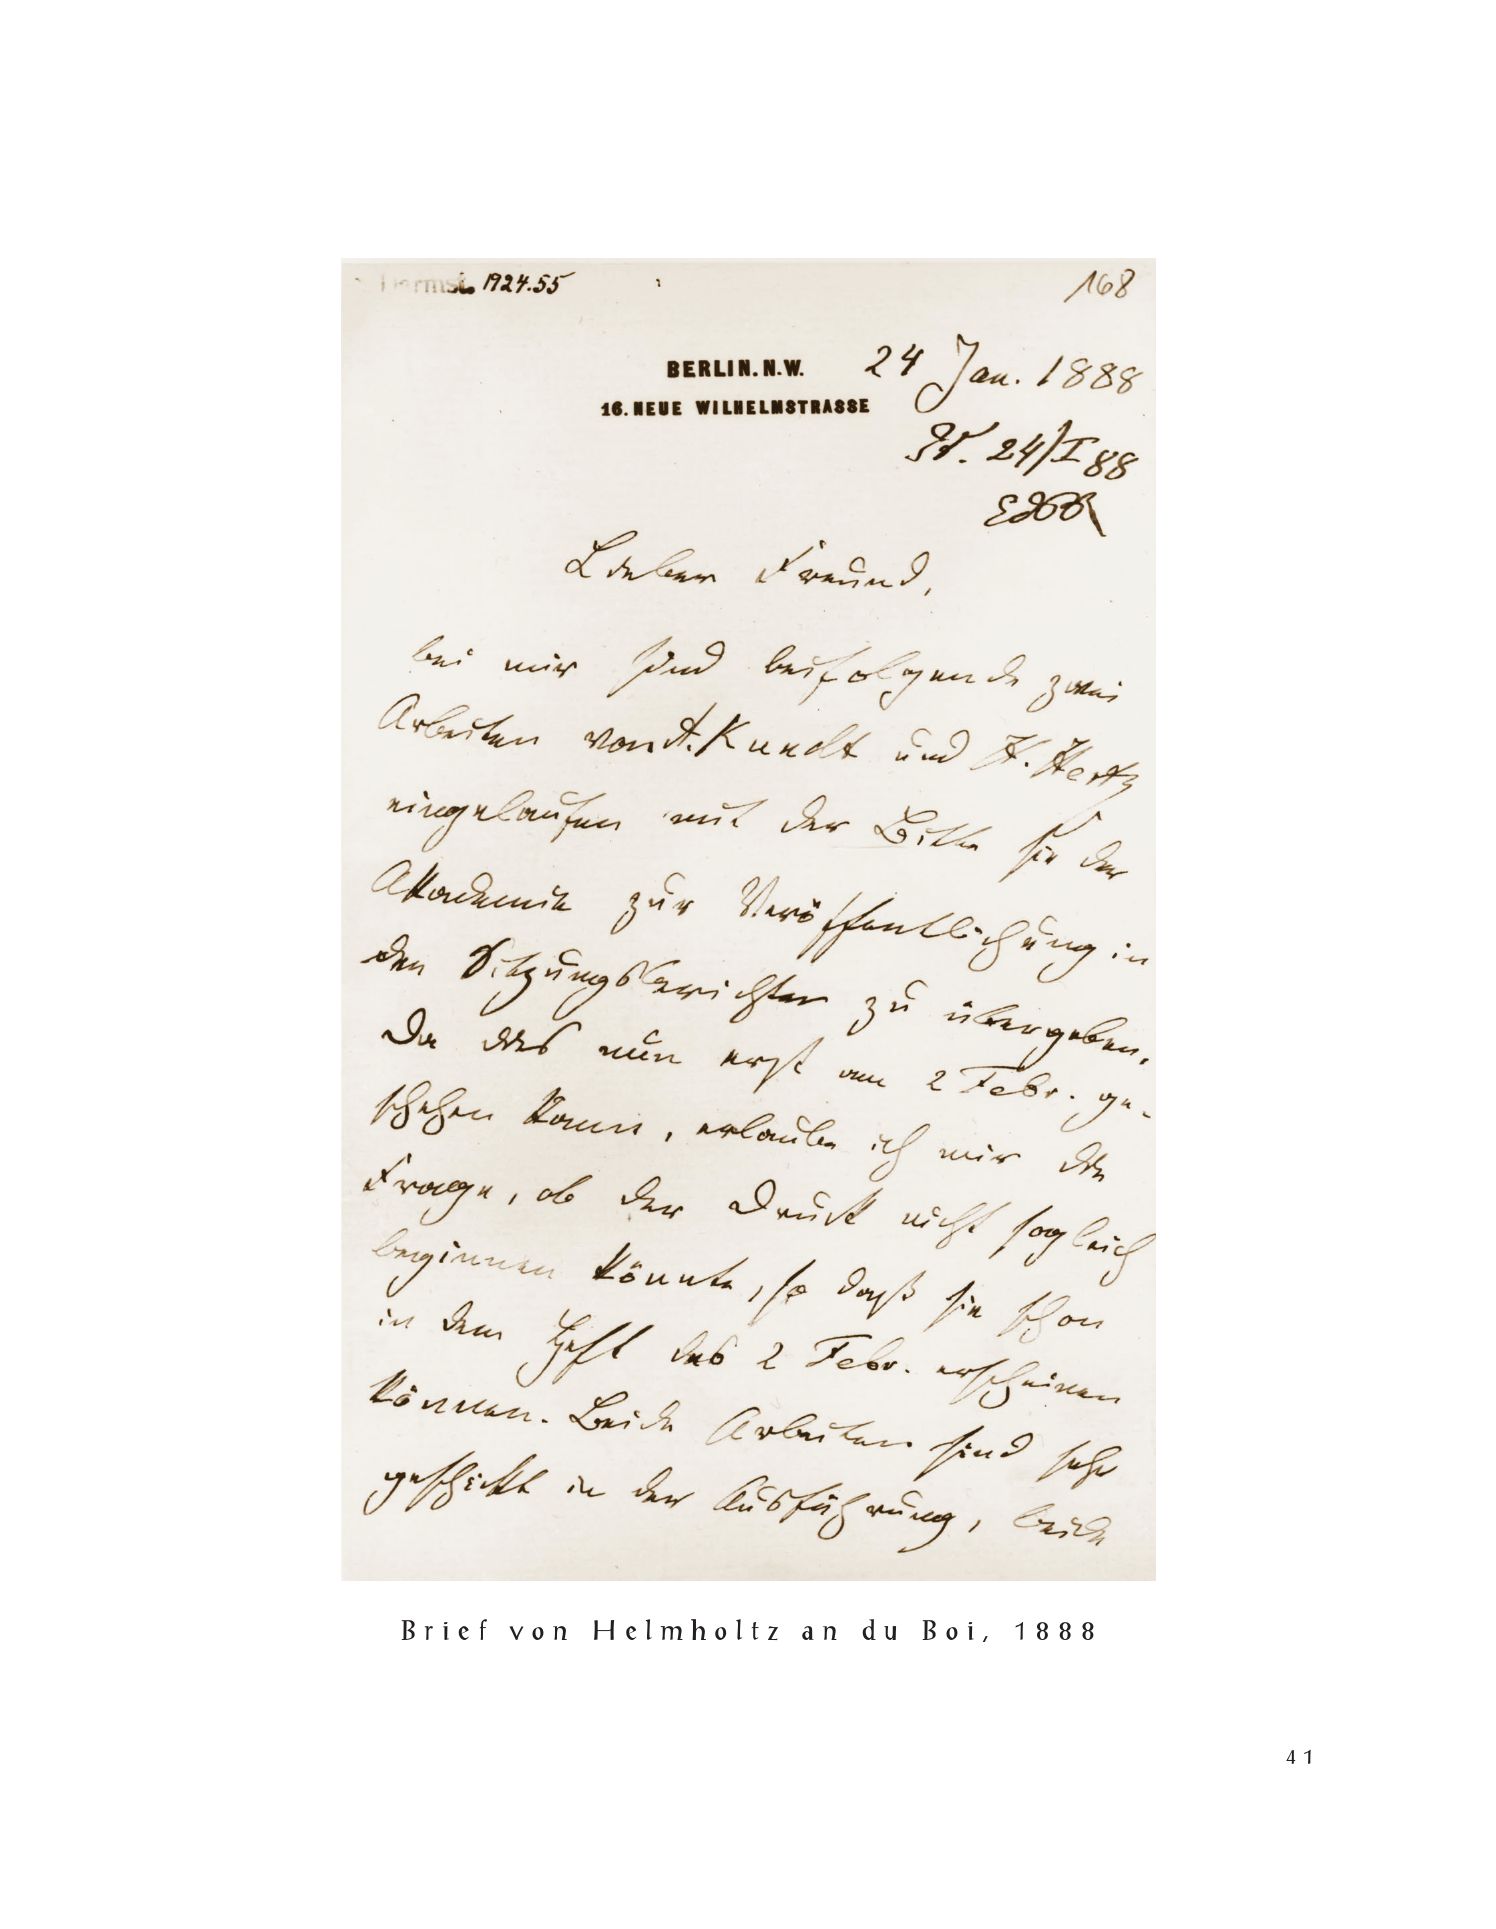 Darmst. 1924.55
168
BERLIN. N.W. 24 Jan. 1888
16. NEUE WILHELMSTRASSE
24/I 88
EdBR
Lieber Freund,
bei mir sind beifolgende zwei
Arbeiten von A. Kundt und H. Hertz
eingelaufen mit der Bitte sie der
Akademie zur Veröffentlichung in
den Sitzungsberichten zu übergeben.
Da dies nun erst am 2 Febr. ge-
schehen kann, erlaube ich mir die
Frage, ob der Druck nicht sogleich
beginnen könnte, so daß sie schon
in dem Heft des 2 Febr. erscheinen
können. Beide Arbeiten sind sehr
geschickt in der Ausführung, beide
Brief von Helmholtz an du Boi, 1888
41